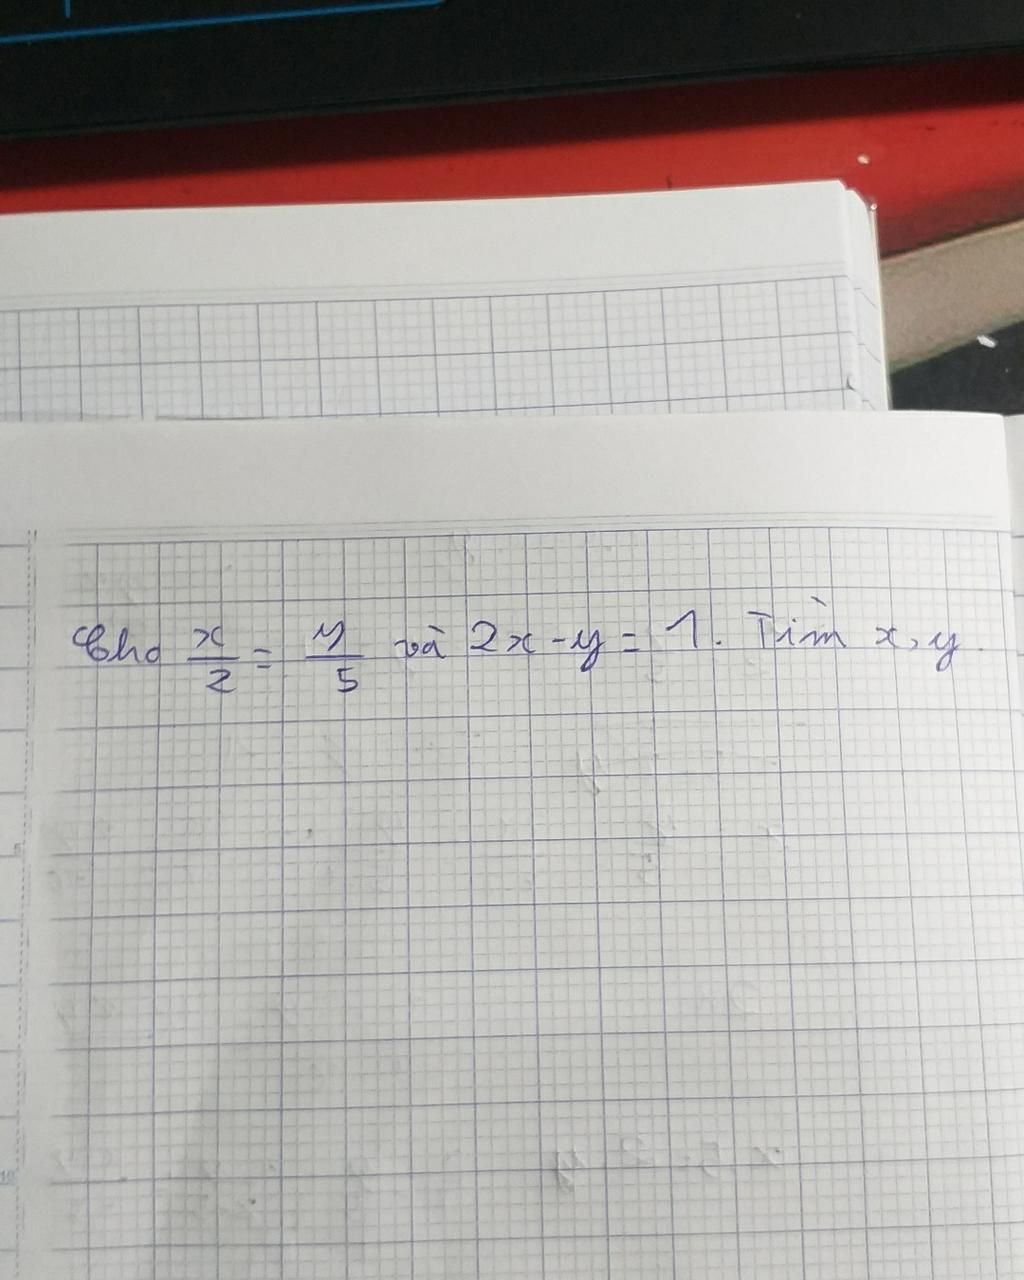 Cho x/2 = y/5 và 2x - y = 1. Tìm x, y.